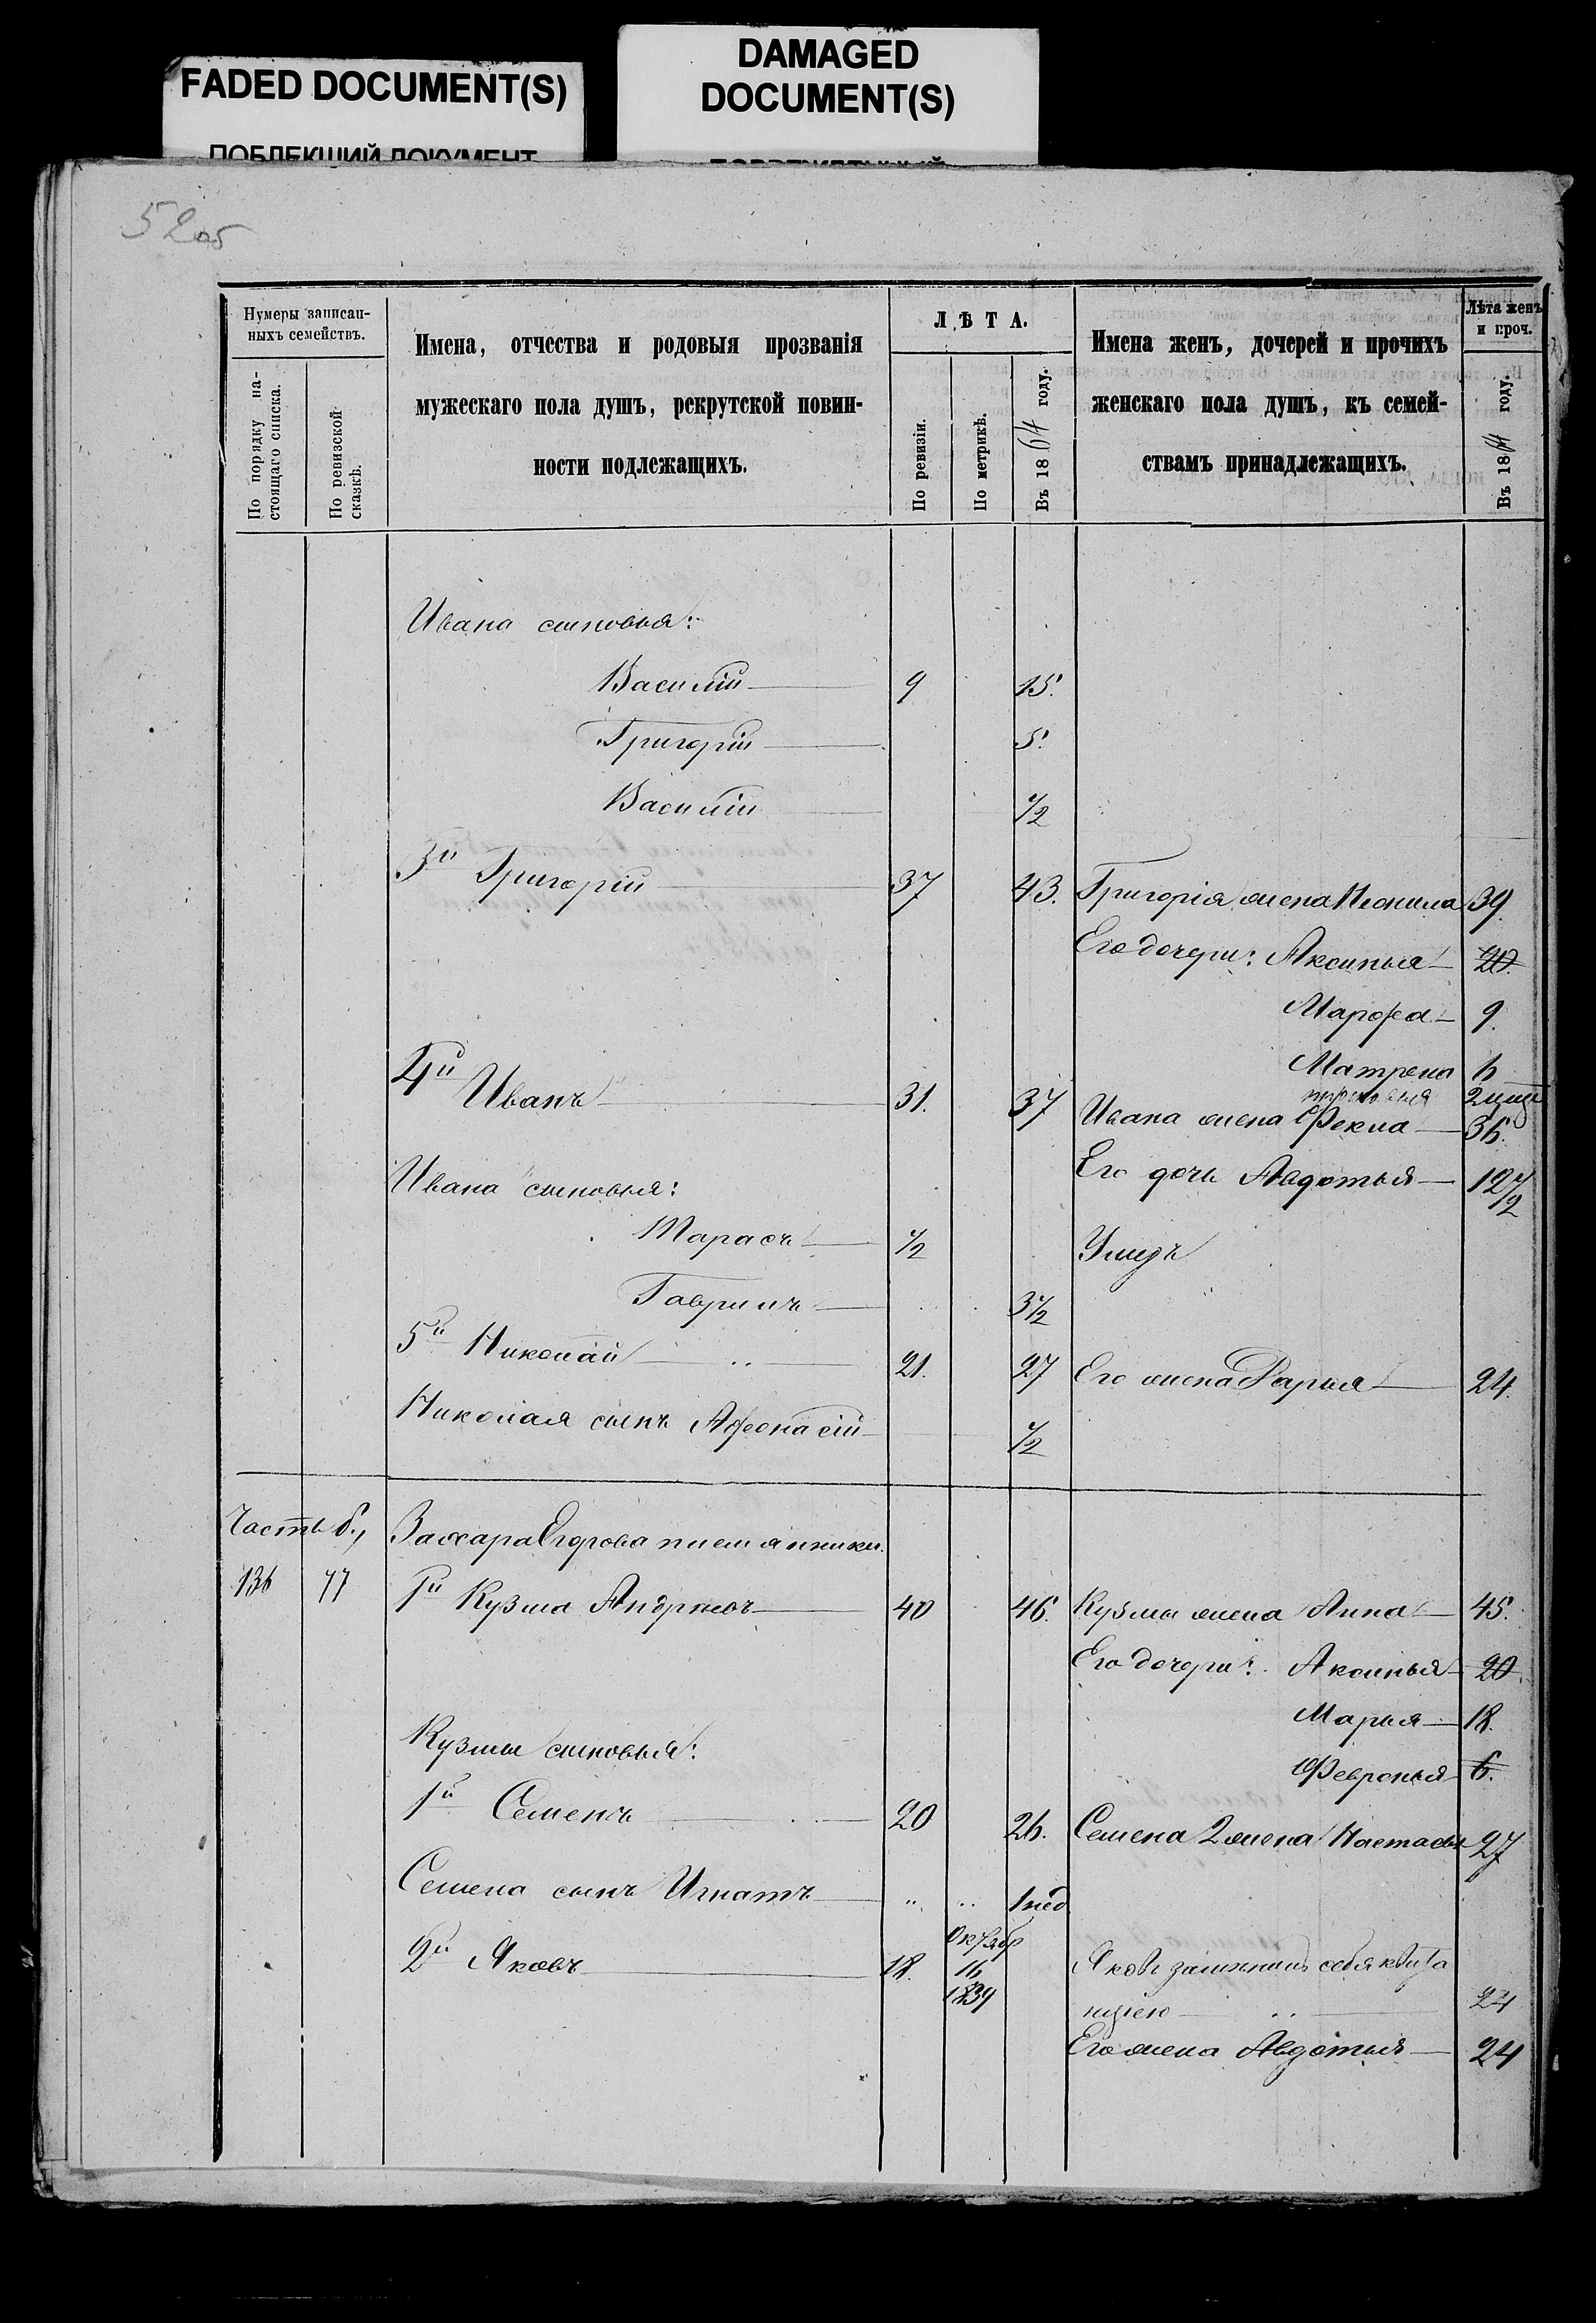 FADED DOCUMENT(S)
ПОБЛЕКШИЙ ДОКУМЕНТ
DAMAGED
DOCUMENT(S)
52об
Нумеры записан-
ныхъ семействъ.
По порядку на-
стоящаго списка.
По ревизской
сказкѣ.
Имена, отчества и родовыя прозванія
мужескаго пола душъ, рекрутской повин-
ности подлежащихъ.
ЛѢТА.
По ревизіи.
По метрикѣ.
Въ 1864 году.
Имена женъ, дочерей и прочихъ
женскаго пола душъ, къ семей-
ствамъ принадлежащихъ.
Лѣта женъ
и проч.
Въ 1864 году.
Ивана сыновья:
Василій 9 15.
Григорій 5.
Василій 1/2
3й Григорій 37 43. Григорія жена Неонила 39.
Его дочери: Аксинья 20.
Марфа 9.
Матрена 6
4й Иванъ 31. 37 Ивана жена Фекла 36.
Его дочь Авдотья 12 1/2
Ивана сыновья:
Тарасъ 1/2 Умеръ
Гаврилъ 3 1/2
5й Николай 21. 27 Его жена Дарья 24.
Николая сынъ Афонасій 1/2
Часть б.,
Захара Егорова племянники.
136 77 1й Кузма Андреевъ 40 46. Кузмы жена Анна 45.
Его дочери: Аксинья 20.
Марья 18.
Кузмы сыновья:
Февронья 6.
1й Семенъ 20 26. Семена 2 жена Настасья 27
Семена сынъ Игнатъ " " 1 нед
2й Яковъ 18. Октябр
16
1839
Яковъ замѣнилъ себя квита
нціею 24
Его жена Авдотья 24